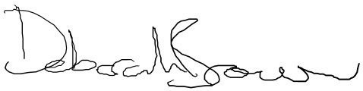 Deborah Brown